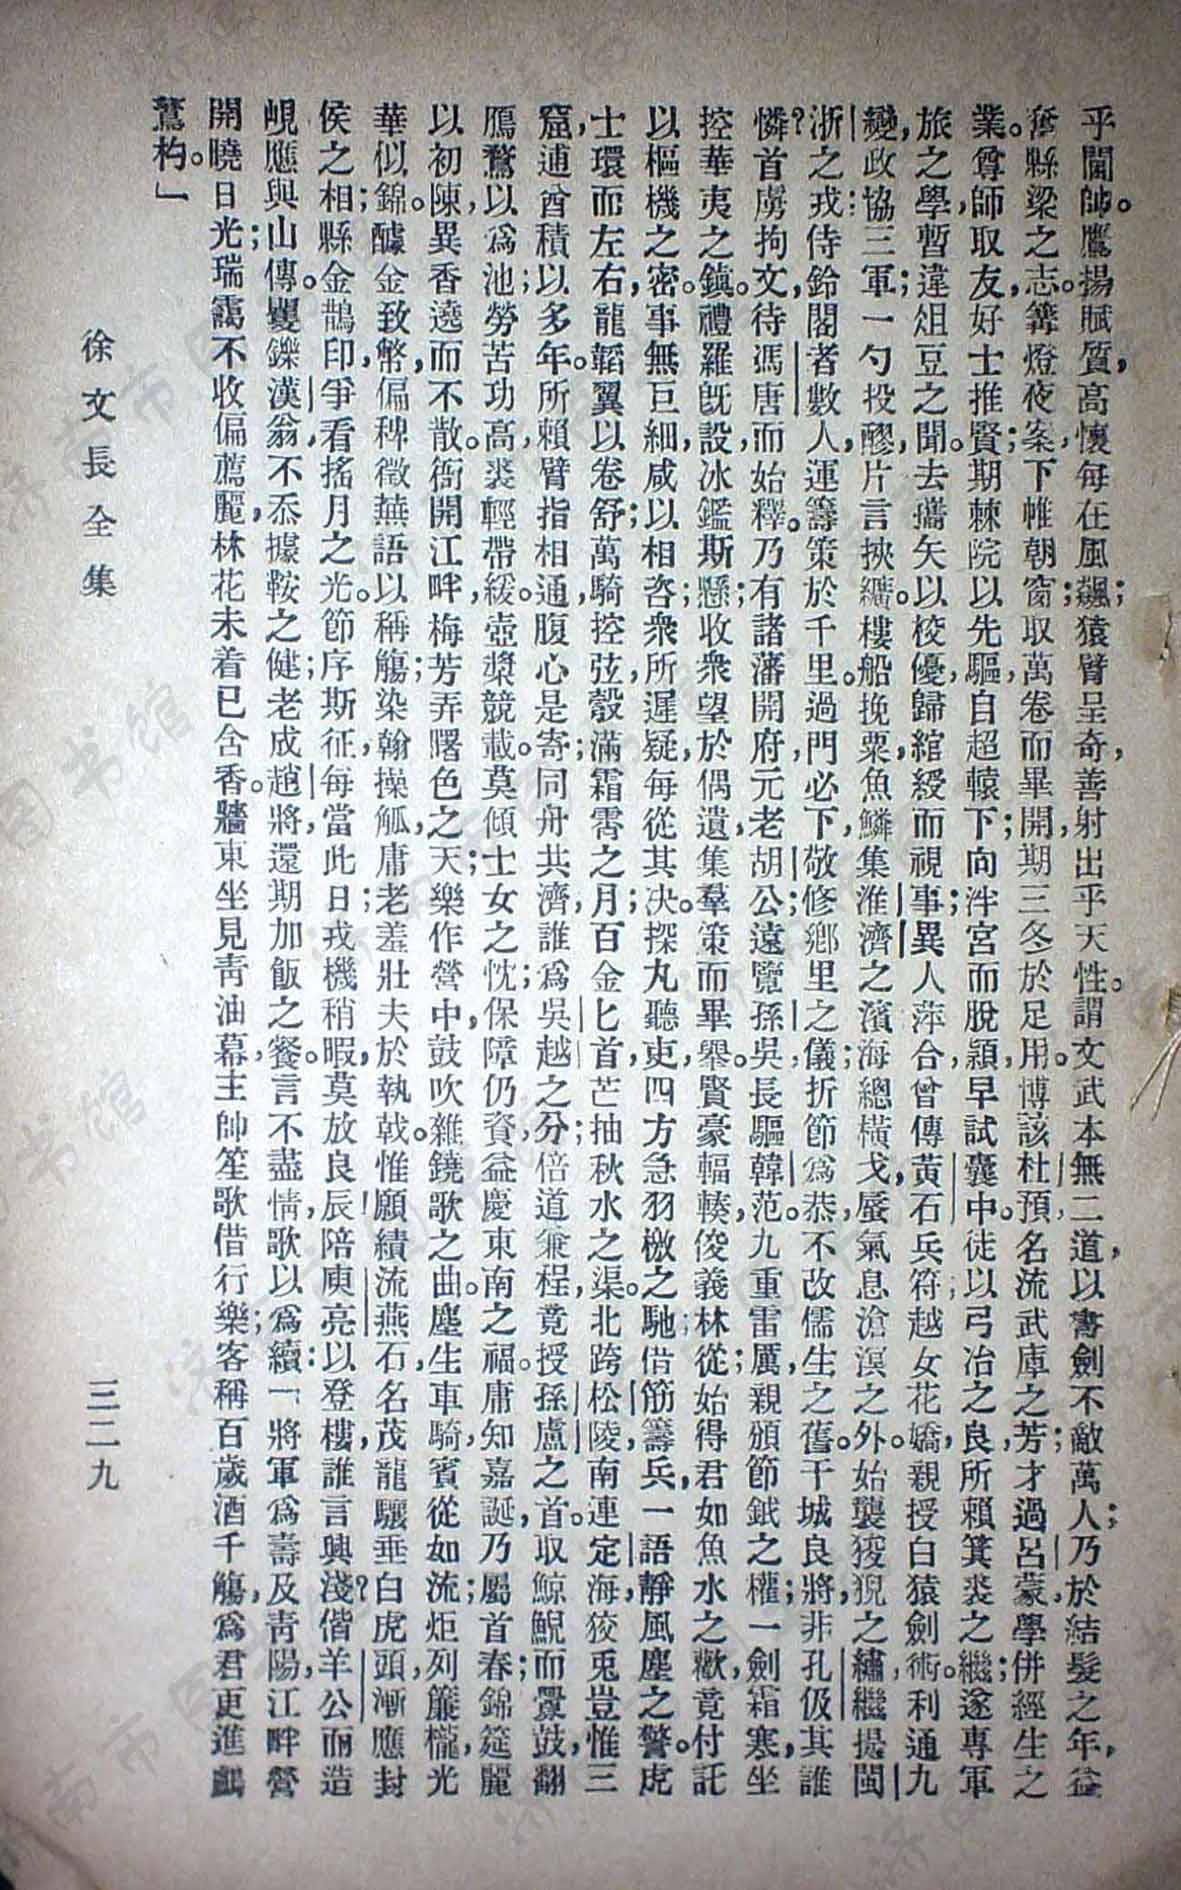 乎閫帥。鷹揚賦質，高懷每在風飆；猿臂呈奇，善射出乎天性。謂文武本無二道，以書劍不敵萬人；乃於結髮之年，益
奮縣梁之志。篝燈夜案，下帷朝窗；取萬卷而畢開，期三冬於足用。博該杜預，名流武庫之芳；才過呂蒙，學併經生之
業。尊師取友，好士推賢；期棘院以先驅，自超轅下；向泮宮而脫穎，早試囊中。徒以弓冶之良，所賴箕裘之繼；遂專軍
旅之學，暫違俎豆之聞。去攜矢以校優，歸綰綬而視事；異人萍合，曾傳黃石兵符；越女花嬌，親授白猿劍術。利通九
變，政協三軍；一勺投醪，片言挾纊。樓船挽粟，魚鱗集淮濟之濱；海總橫戈，蜃氣息滄溟之外。始襲狻猊之繡，繼提閩
浙之戎：侍鈴閣者數人，運籌策於千里。過門必下，敬修鄉里之儀；折節爲恭，不改儒生之舊。干城良將，非孔伋其誰
憐？首虜拘文，待馮唐而始釋。乃有諸藩開府，元老胡公；遠覽孫吳，長驅韓范。九重雷厲，親頒節鉞之權；一劍霜寒，坐
控華夷之鎮。禮羅旣設，冰鑑斯懸；收衆望於偶遺，集羣策而畢舉。賢豪輻輳，俊義林從；始得君如魚水之歡，竟付託
以樞機之密。事無巨細，咸以相咨；衆所遲疑，每從其決。探丸聽吏，四方急羽檄之馳；借筋籌兵，一語靜風塵之警。虎
士環而左右，龍韜翼以卷舒；萬騎控弦，彀滿霜雲之月；百金匕首，芒抽秋水之渠。北跨松陵，南連定海；狡兎豈惟三
窟，逋酋積以多年。所賴臂指相通，腹心是寄；同舟共濟，誰爲吳越之分；倍道兼程，竟授孫盧之首。取鯨鯢而釁鼓，翻
鴈鶩以爲池；勞苦功高，裘輕帶緩。壺漿競載，莫傾士女之忱；保障仍資，益慶東南之福。庸知嘉誕，乃屬首春；錦筵麗
以初陳，異香遶而不散。衙開江畔，梅芳弄曙色之天；樂作營中，鼓吹雜鐃歌之曲。塵生車騎，賓從如流；炬列簾櫳，光
華似錦。醵金致幣，偏稗徵蕪語以稱觴；染翰操觚，庸老羞壯夫於執戟。惟願績流燕石，名茂龍驤；垂白虎頭，漸應封
侯之相；縣金鵲印，爭看搖月之光。節序斯征，每當此日；戎機稍暇，莫放良辰。陪庾亮以登樓，誰言興淺？偕羊公而造
峴，應與山傳。矍鑠漢翁，不忝據鞍之健；老成趙將，還期加飯之餐。言不盡情，歌以爲續：「將軍爲壽及青陽，江畔營
開曉日光；瑞靄不收偏薦麗，林花未着已含香。牆東坐見青油幕，主帥笙歌借行樂；客稱百歲酒千觴，爲君更進鸕
鶿杓。」
徐文長全集
三二九